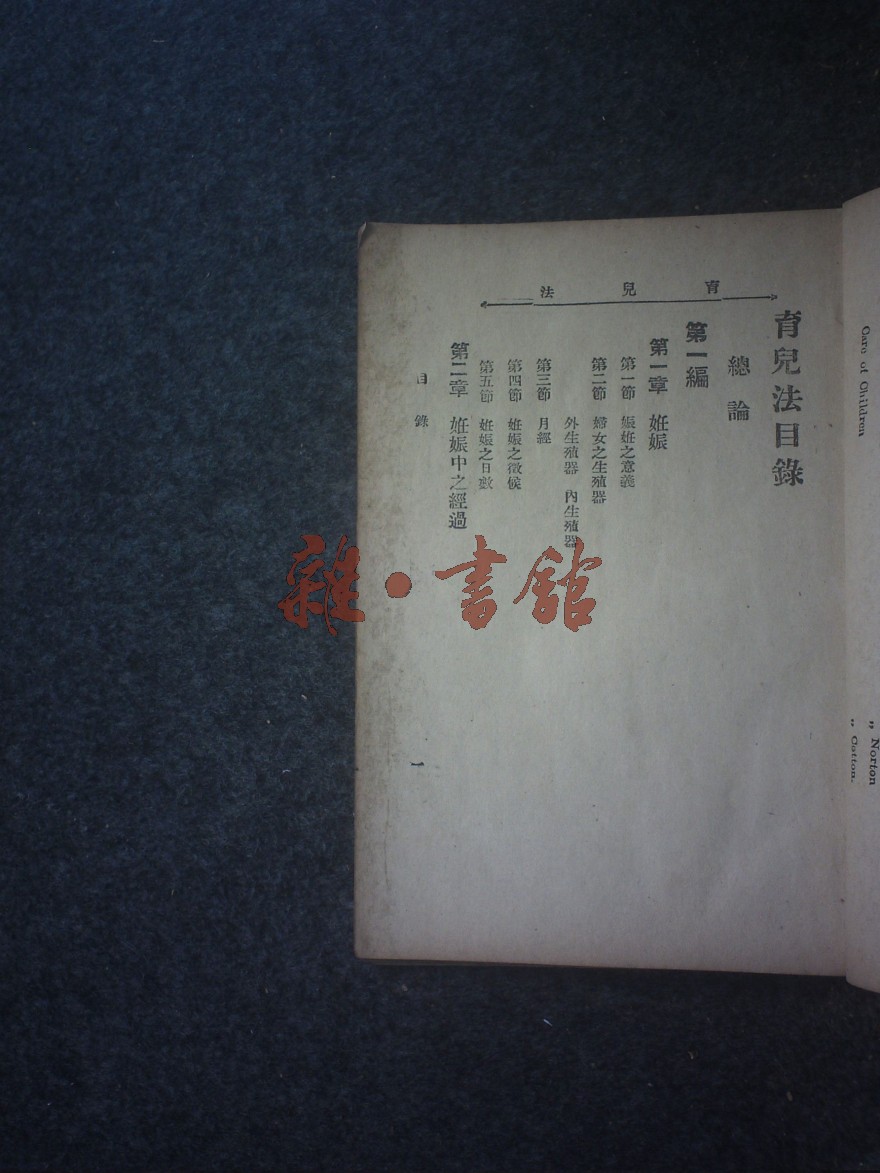 育兒法
育兒法目錄
總論
第一編
第一章 姙娠
第一節 娠姙之意義
第二節 婦女之生殖器
外生殖器 內生殖器
第三節 月經
第四節 姙娠之徵候
第五節 姙娠之日數
第二章 姙娠中之經過
目錄
一
Care of Children
„ Norton
„ Cotton.
雜·書館